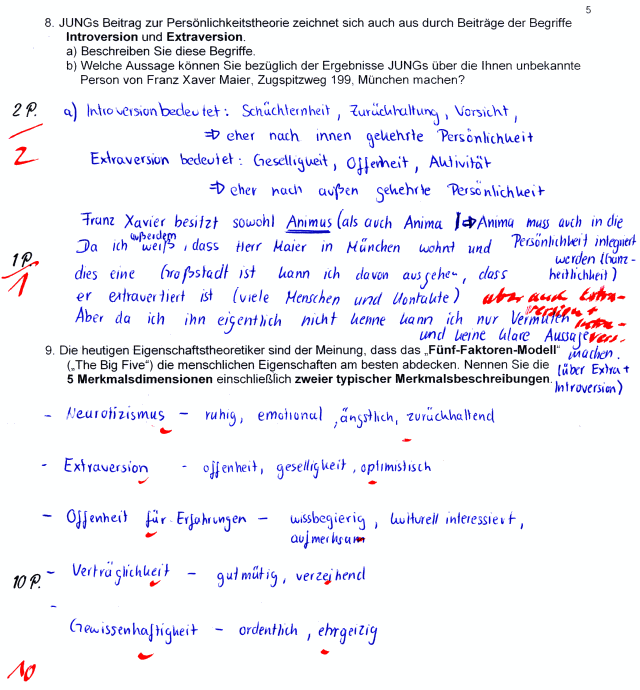 5
8. JUNGs Beitrag zur Persönlichkeitstheorie zeichnet sich auch aus durch Beiträge der Begriffe
Introversion und Extraversion.
a) Beschreiben Sie diese Begriffe.
b) Welche Aussage können Sie bezüglich der Ergebnisse JUNGs über die Ihnen unbekannte
Person von Franz Xaver Maier, Zugspitzweg 199, München machen?
2 P.
2
a) Introversion bedeutet: Schüchternheit, Zurückhaltung, Vorsicht,
⇒ eher nach innen gekehrte Persönlichkeit
Extraversion bedeutet: Geselligkeit, Offenheit, Aktivität
⇒ eher nach außen gekehrte Persönlichkeit
Franz Xavier besitzt sowohl Animus (als auch Anima ⇒ Anima muss auch in die
Persönlichkeit integriert
werden (Ganz-
heitlichkeit)
1 P.
1
Da ich außerdem weiß, dass Herr Maier in München wohnt und
dies eine Großstadt ist kann ich davon ausgehen, dass
er extravertiert ist (viele Menschen und Kontakte)
aber auch Extra-
version +
Intro-
vers.
Aber da ich ihn eigentlich nicht kenne kann ich nur Vermuten
und keine klare Aussage
machen.
(über Extra +
Introversion)
9. Die heutigen Eigenschaftstheoretiker sind der Meinung, dass das „Fünf-Faktoren-Modell“
(„The Big Five“) die menschlichen Eigenschaften am besten abdecken. Nennen Sie die
5 Merkmalsdimensionen einschließlich zweier typischer Merkmalsbeschreibungen.
- Neurotizismus - ruhig, emotional, ängstlich, zurückhaltend
- Extraversion - offenheit, geselligkeit, optimistisch
- Offenheit für Erfahrungen - wissbegierig, kulturell interessiert,
aufmerksam
10 P.
- Verträglichkeit - gutmütig, verzeihend
-
Gewissenhaftigkeit - ordentlich, ehrgeizig
10